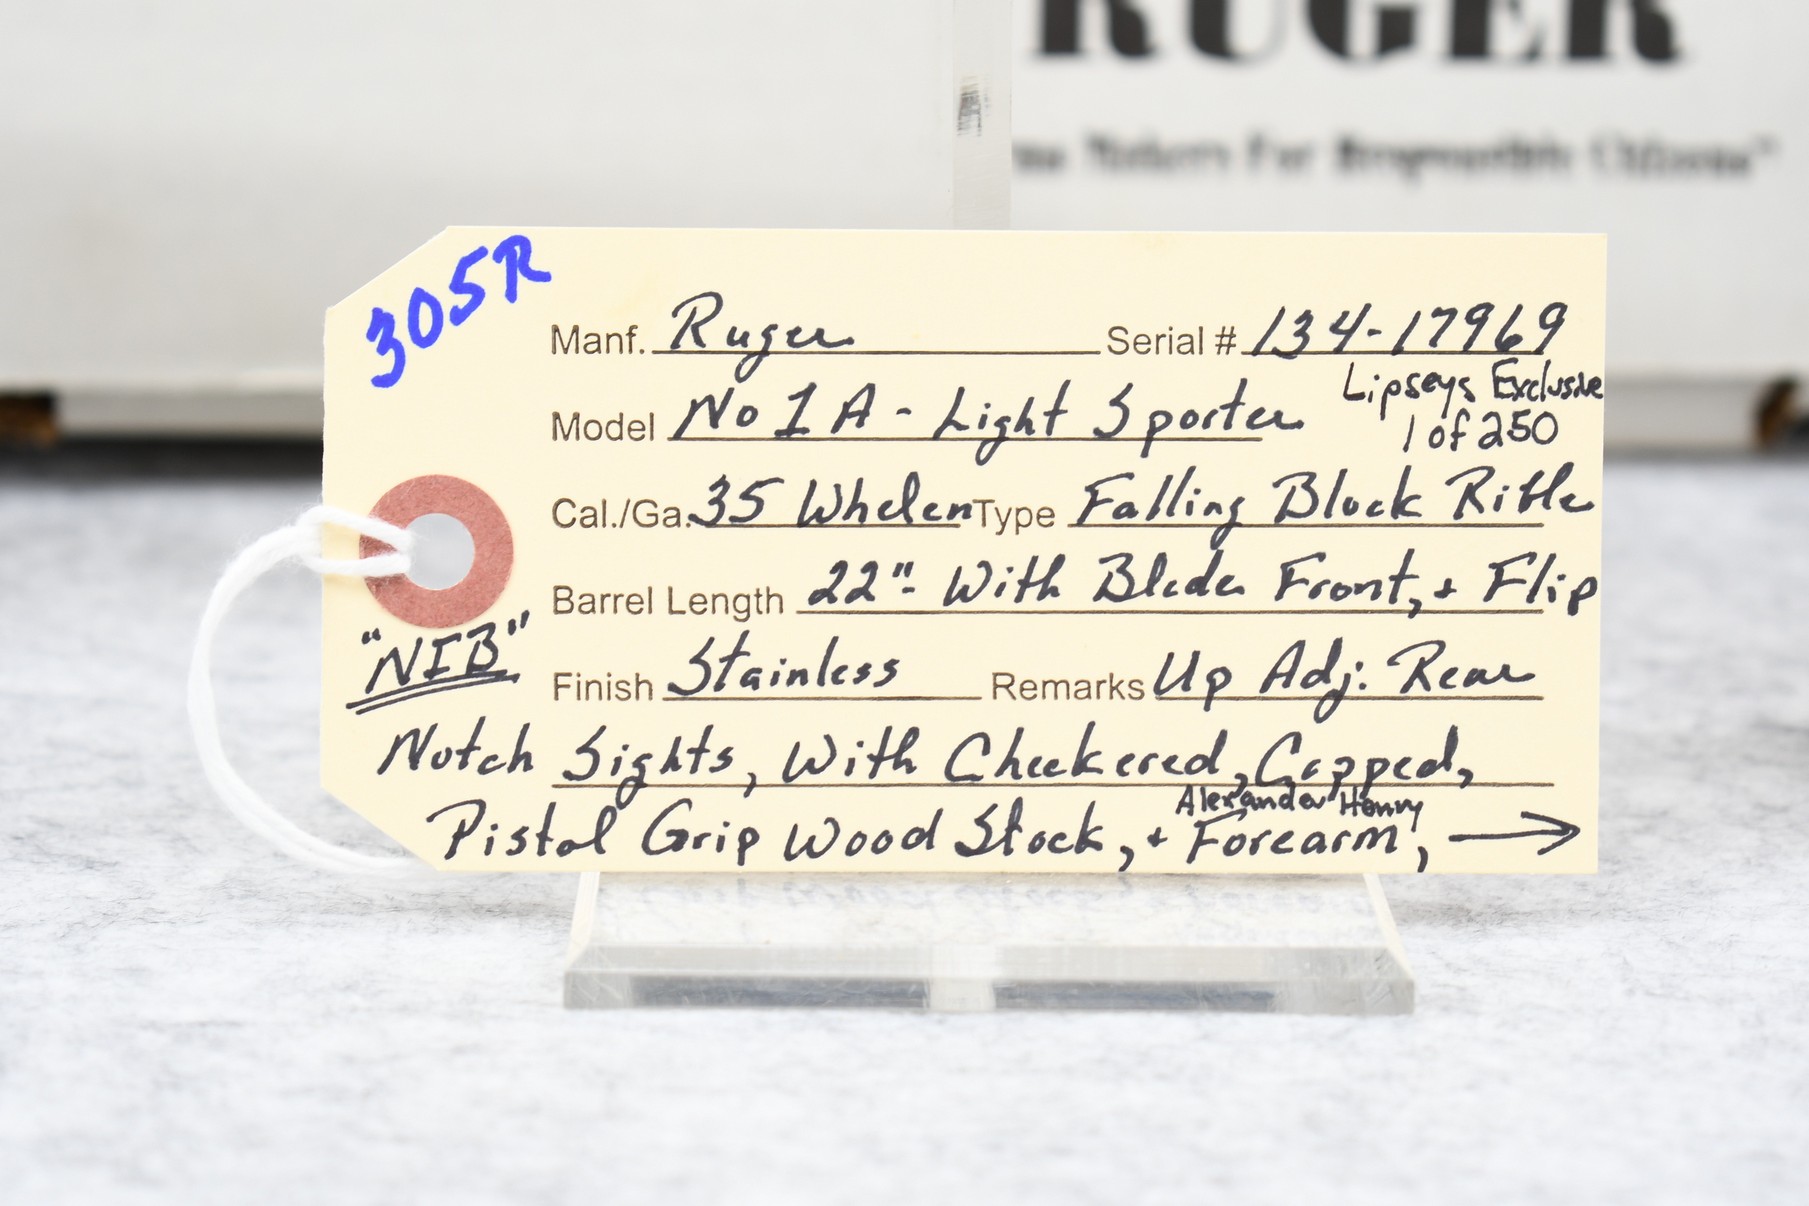 RUGER
Makers For Responsible Citizens"
305R
Manf. Ruger Serial # 134-17969
Lipseys Exclusive
Model No 1 A - Light Sporter 1 of 250
Cal./Ga. 35 Whelen Type Falling Block Rifle
Barrel Length 22"- With Blade Front, + Flip
"NIB"
Finish Stainless Remarks Up Adj. Rear
Notch Sights, With Checkered, Capped,
Alexander Henry
Pistol Grip Wood Stock, + Forearm, →